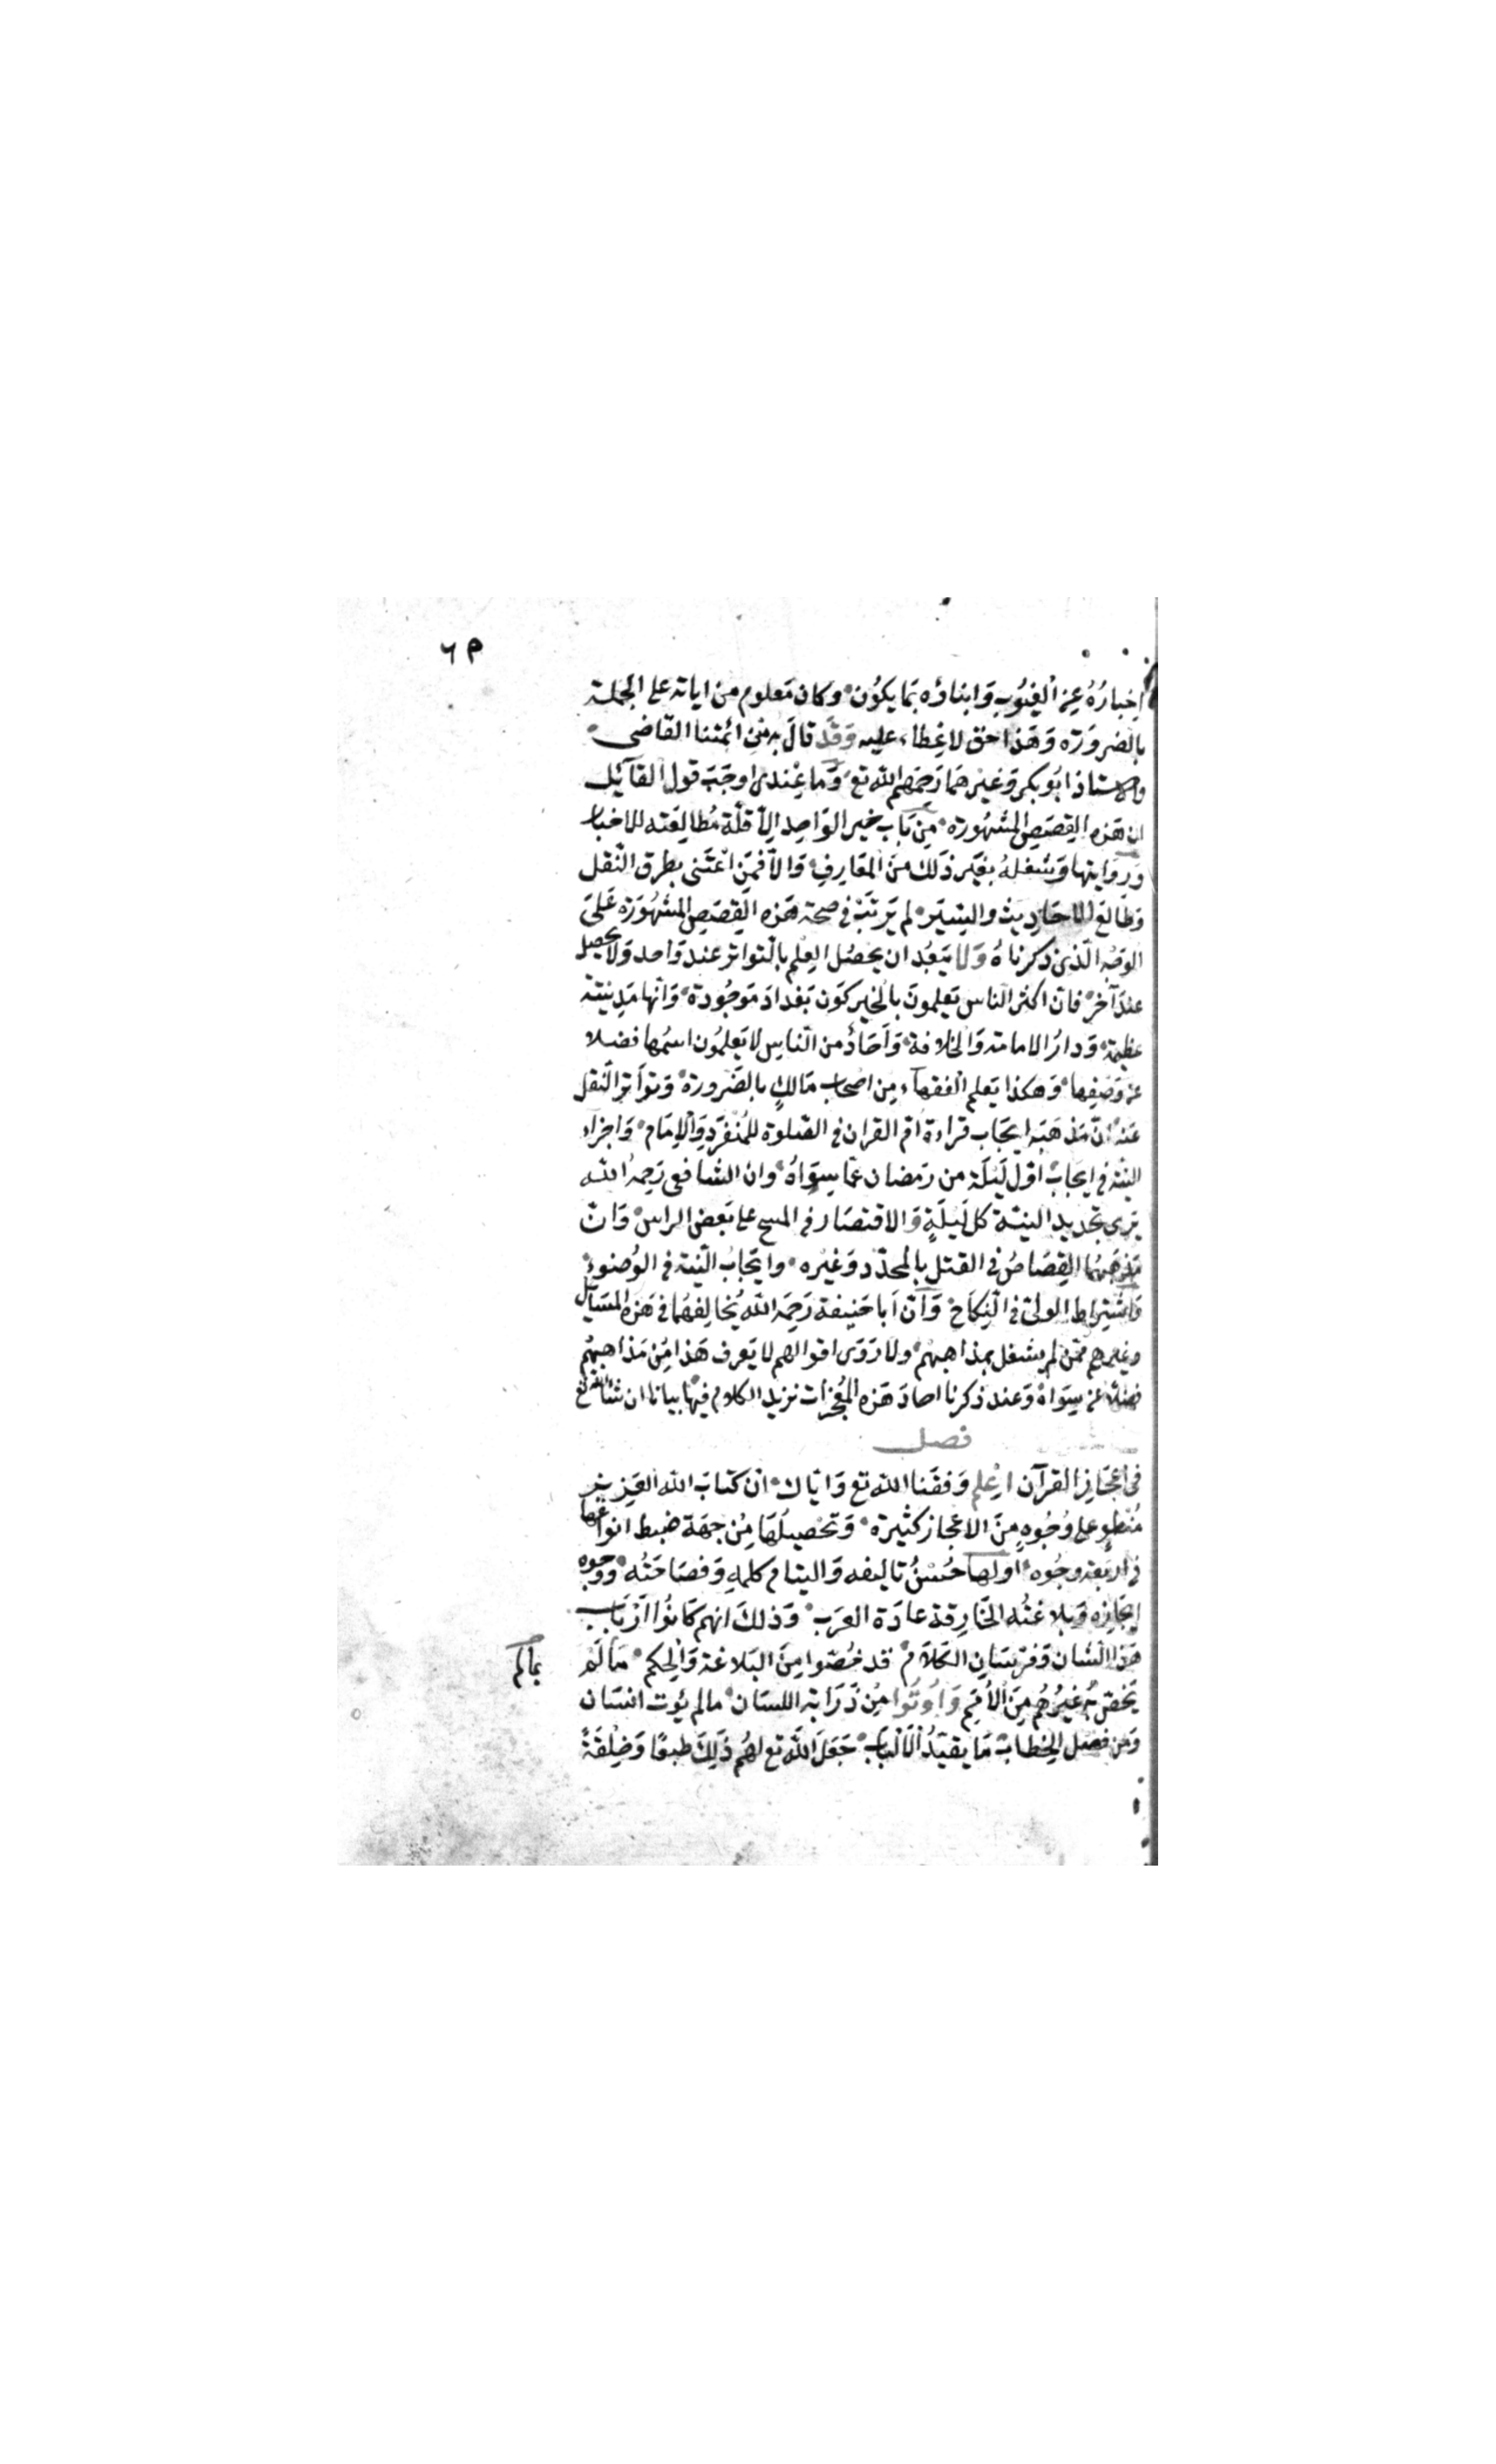 ٦٥
اِخبارُهُ عنِ الغيُوُبِ وَانباؤه بمَا يكوُن وكان مَعلوم من اياته على الجملة
بالضروَرَه وَهَذا حق لا غِطاء عليه وَقَد قالَ به مِن ائمتنا القاضى
والاستاذ ابُو بكر وَغيرهمَا رَحمَهم الله تع وَما عِندى اوجَبَ قول القآئل
ان هَذه القِصَص المشهُورَه مِن بَاب خبر الوَاحِد الّا قلّة مُطالعَته للاخبار
وَرِوَايتها وَشغلهُ بغَير ذلك منَ المعَارفِ وَالّا فمَن اعتَنى بطرق النّقل
وَطالعَ الاحَاديث والسِيَر لم يَرتَبْ فى صحة هَذه القِصَص المشهُوَرَة عَلىَ
الوَجه الّذى ذكرناهُ وَلا يَبعُد ان يحصُل العِلم بالتواتر عند وَاحد وَلا يحصل
عندَ آخرَ فان اكثر الناس يَعلمونَ بالخبر كوَن بَغدادَ مَوجُودة وَانها مَدِينَة
عظيمة وَدارُ الامامة وَالخلافة وَآحَادٌ من النّاسِ لا يَعلموُن اسمُها فضلا
عن وَصْفِها وَهكذا يَعلم الفقهآء مِن اصْحاب مَالكٍ بالضّرورة وَتوَاتر النّقل
عَنهُ انّ مَذهَبَه ايجَاب قراءة ام القران فى الصّلوة للمُنفرَدِ وَالاِمَام وَاجزاء
النيّة فى ايجَاب اوّل ليْلَة من رَمضان عمّا سِوَاهُ وان الشافعى رَحِمهُ الله
يَرى تجديد النيّة كل لَيلَةٍ وَالاقتصَار فى المسح على بَعض الراس وَانّ
مَذهَبهُمَا القِصَاصُ فى القتل بالمحدّد وَغيره وايجَابُ النّية فى الوُضوءِ
وَاشتِراط الولىّ فى النِكاح وَانّ اَبا حَنيفة رَحِمَه الله يُخالِفهُما فى هَذه المسَايل
وغيرهم ممّن لم يشغل بمذاهبهمُ ولا رَوَى اقوالهم لا يَعرف هَذا مِن مَذاهبهُم
فضلًا عن سِوَاهُ وَعند ذكرنا احادَ هَذه المعْجزات نزيد الكلام فيها بيانا ان شآ الله تع
فصل
فى اعجَازِ القرآن اِعْلم وَفقَنا الله تع وَايّاك ان كتابَ الله العَزيز
مُنْطوٍ على وُجُوهٍ مِنَ الاعجاز كثيرة وَتحْصيلهَا مِن جهَة ضبط انواعها
فى اربَعة وجُوه اولها حُسْنُ تاليفه وَالتيام كلمهِ وَفصَاحَتُه ووجوه
ايجَازه وَبلاغتُه الخَارِقة عادَة العرَب وَذلكَ انهم كَانوُا اَرْبَاب
هَذا الشان وَفرسَانِ الكلاَم قد خصّوا مِنَ البَلاغة وَالحِكم مَا لَم
يُخَصّ به غيرُهُم مِنَ الاُمَمِ وَاوُتُوا مِن ذَرَابة اللسَان مالم يُوت انسَان
وَمن فصل الخِطابِ مَا يقيّدُ الالبَاب جَعَلَ الله تع لهُم ذَلِكَ طَبعًا وَخِلْقَةً
بمالم